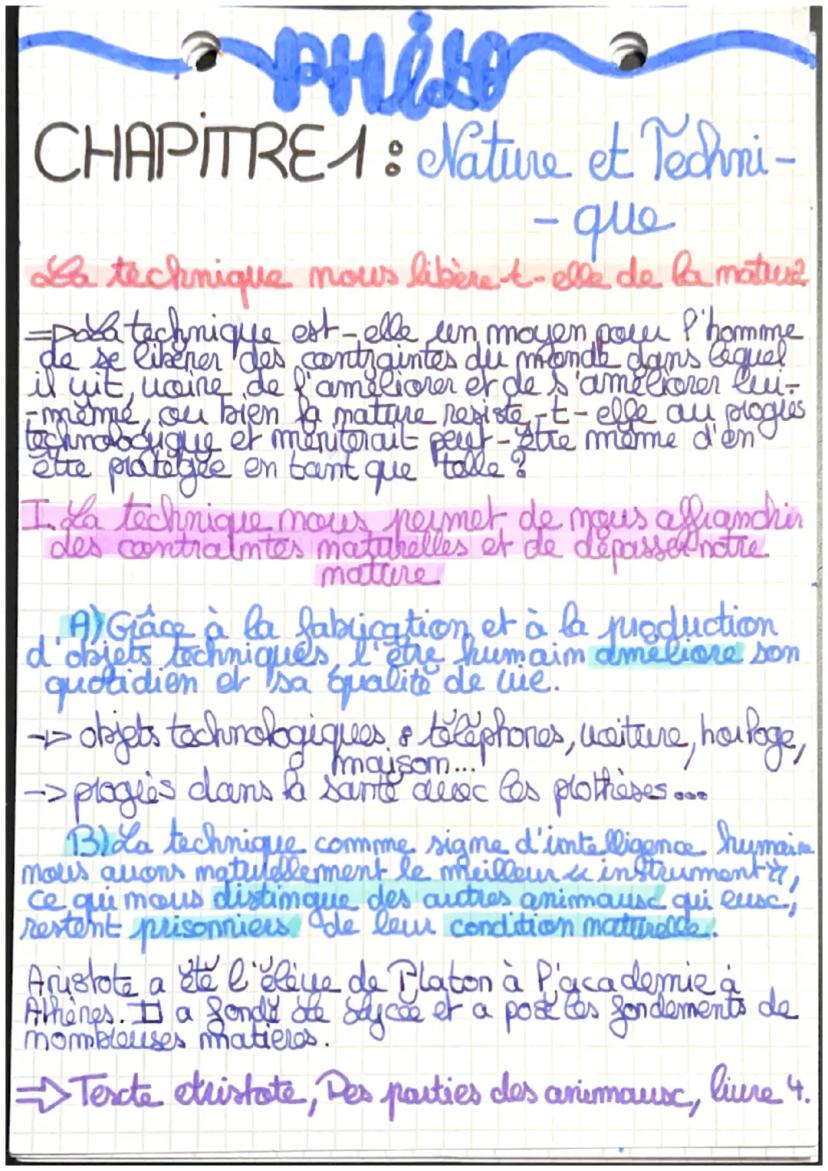 PHiLO
CHAPiTRE 1 : Nature et Techni-
-que
La technique nous libère-t-elle de la nature?
=> La technique est-elle un moyen pour l'homme
de se libérer des contraintes du monde dans lequel
il vit, voire de l'améliorer et de s'améliorer lui-
-même, ou bien la nature resiste-t-elle au progrès
technologique et mériterait peut-être même d'en
être protégée en tant que telle ?
I. La technique nous permet de nous affranchir
des contraintes naturelles et de dépasser notre
nature
A) Grâce à la fabrication et à la production
d'objets techniques, l'être humain améliore son
quotidien et sa qualité de vie.
-> objets technologiques : téléphones, voiture, horloge,
maison...
-> progrès dans la santé avec les prothèses...
B) La technique comme signe d'intelligence humaine
nous avons naturellement le meilleur « instrument »,
ce qui nous distingue des autres animaux qui eux,
restent prisonniers de leur condition naturelle.
Aristote a été l'élève de Platon à l'académie à
Athènes. Il a fondé le Lycée et a posé les fondements de
nombreuses matières.
=> Texte Aristote, Des parties des animaux, livre 4.